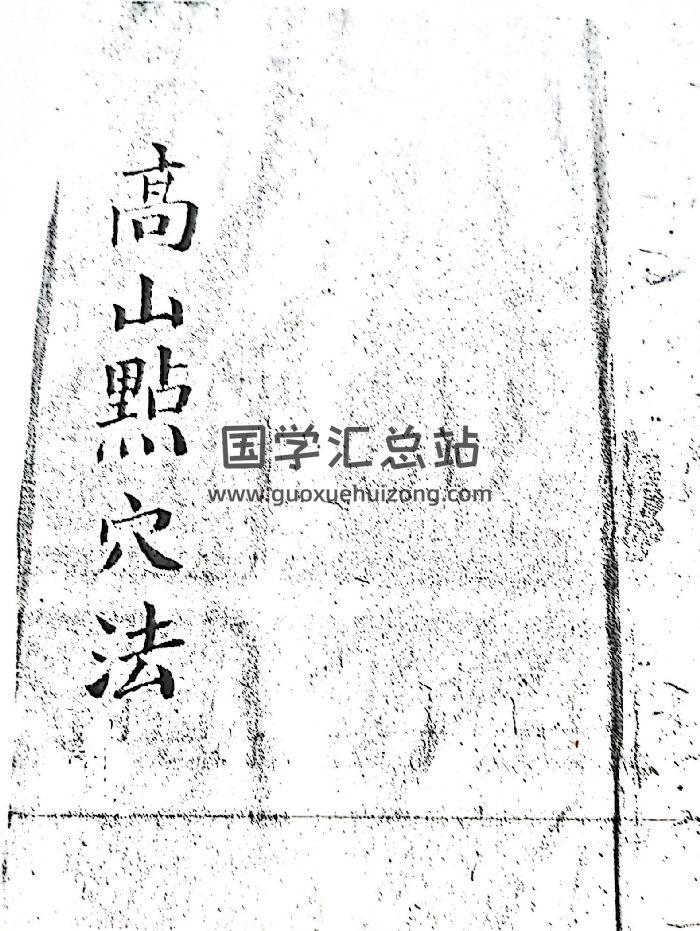 高山點穴法
国学汇总站
www.guoxuehuizong.com